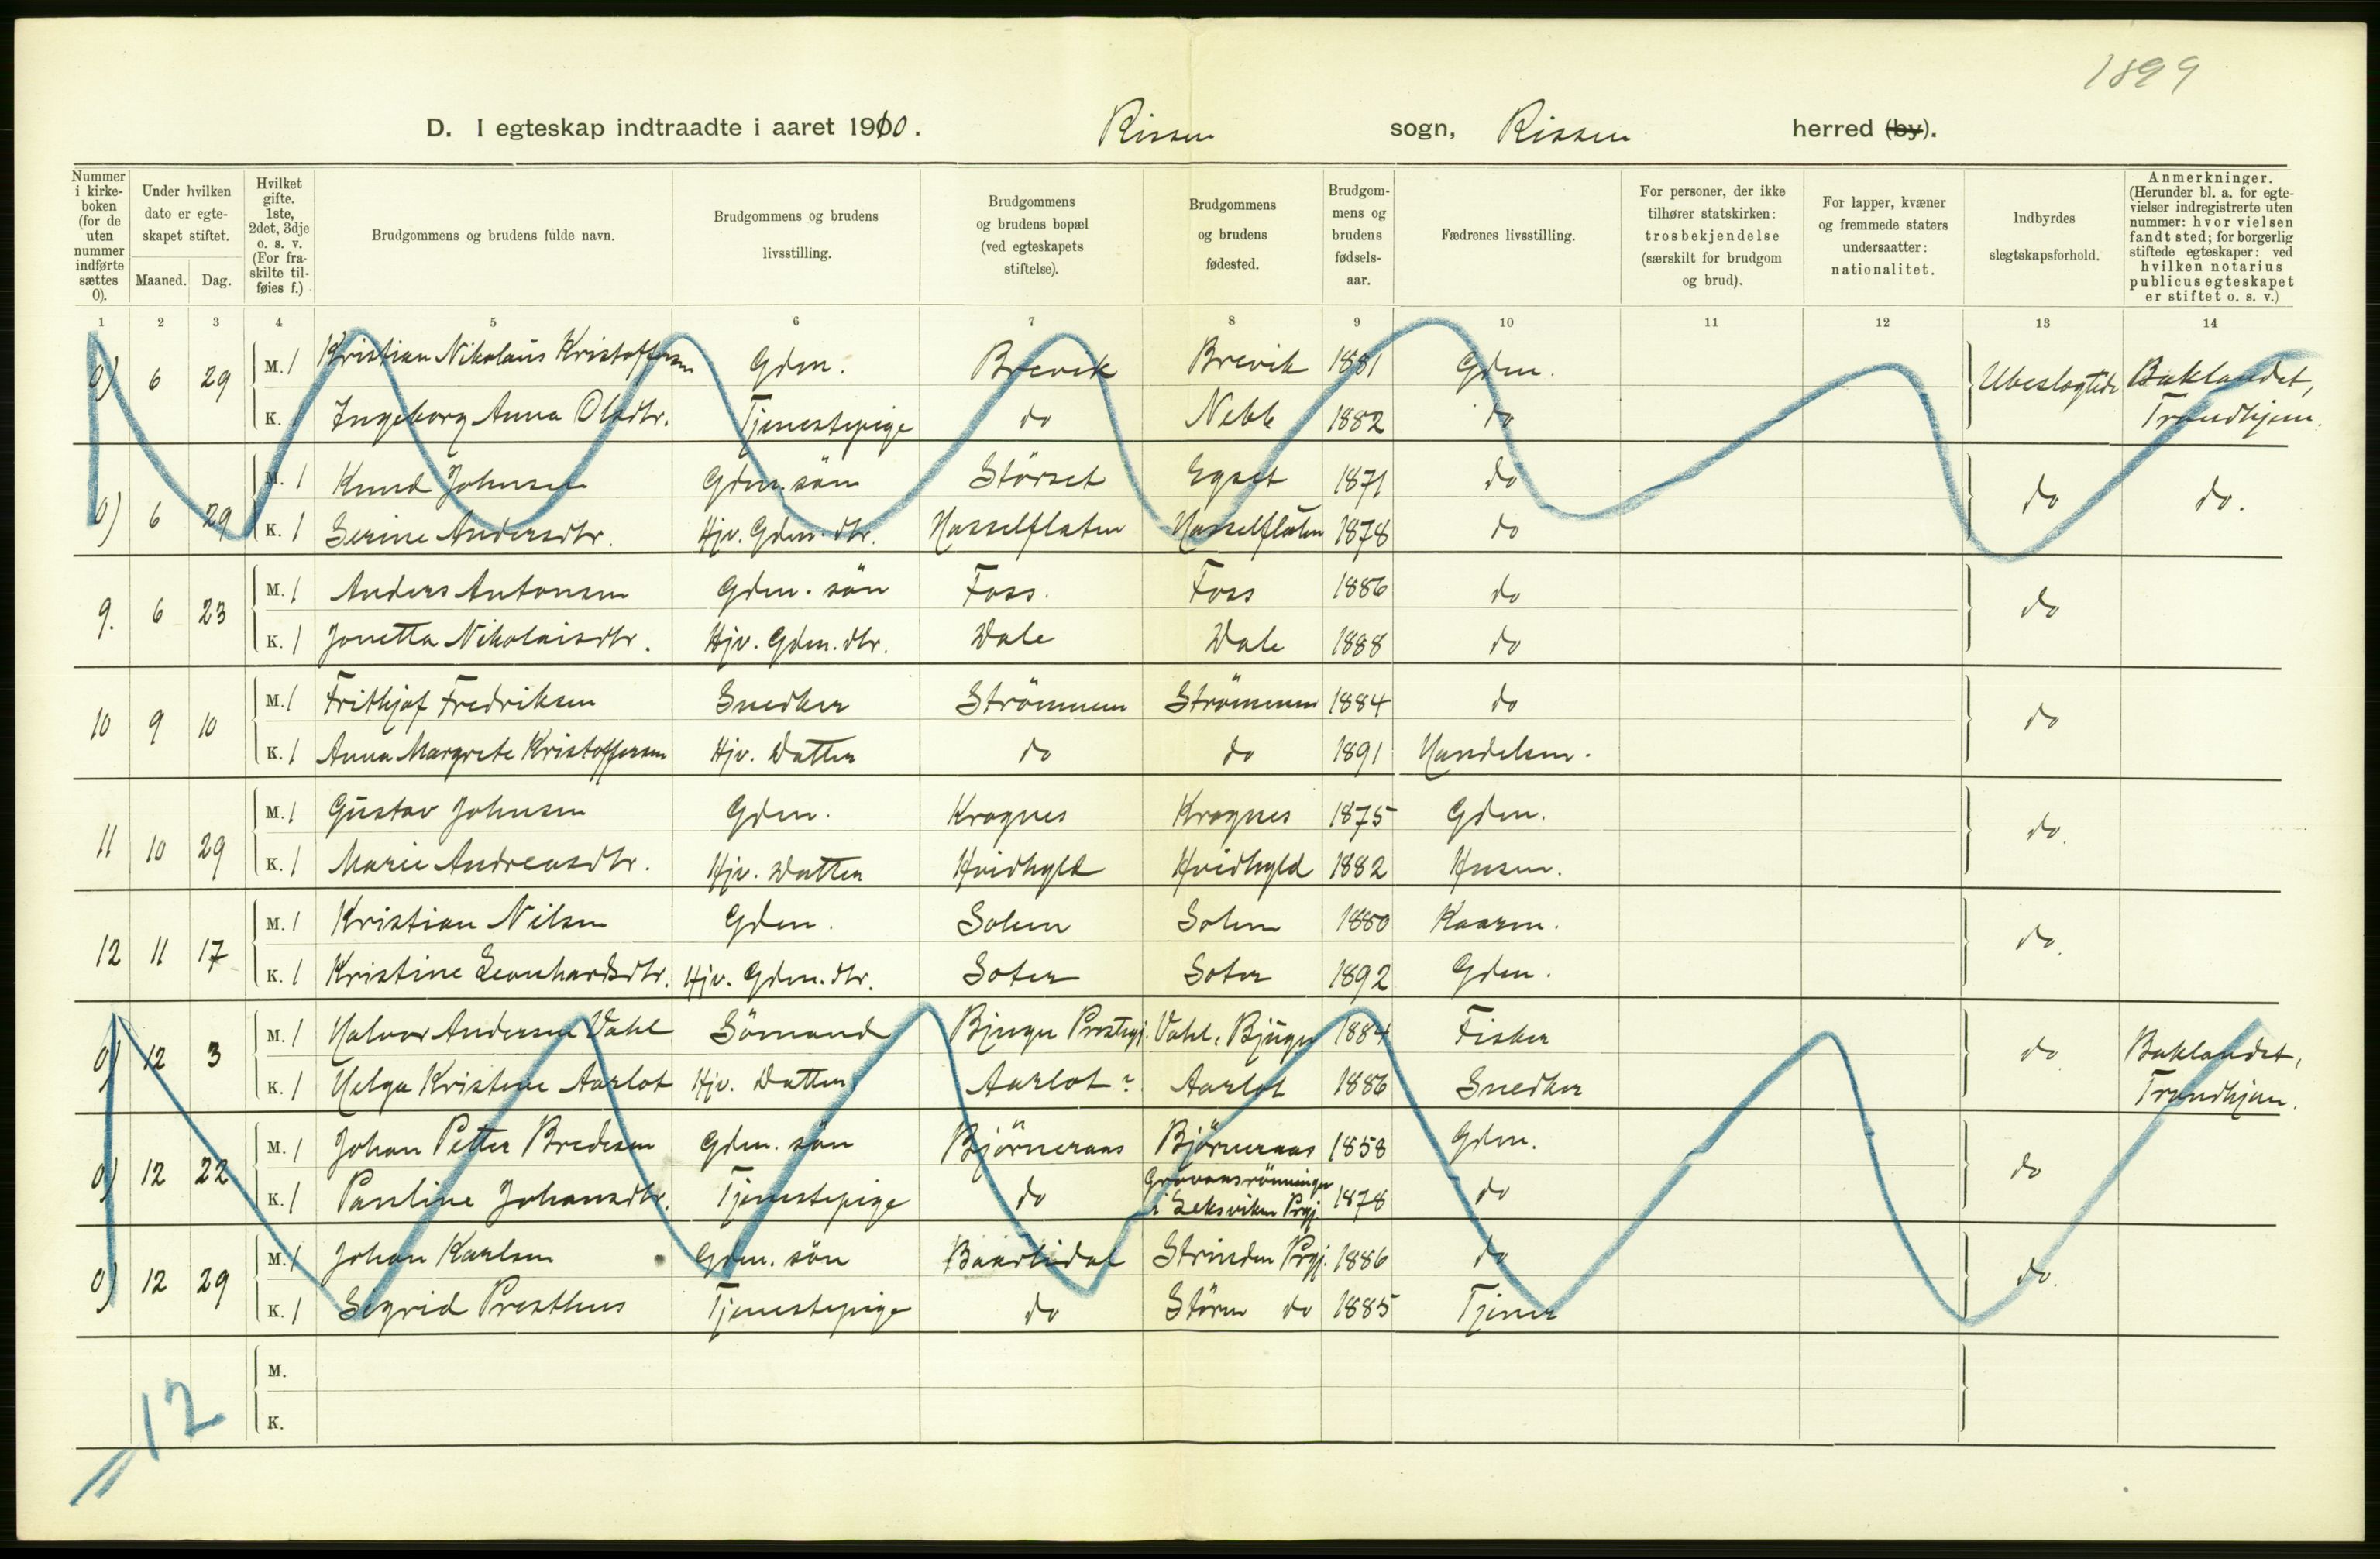 1899
D. I egteskap indtraadte i aaret 1910. Rissen sogn, Rissen herred (by).
Nummer i kirkeboken (for de uten nummer indførte sættes 0).
Under hvilken dato er egteskapet stiftet.
Maaned. Dag.
Hvilket gifte. 1ste, 2det, 3dje o. s. v. (For fraskilte tilføies f.)
Brudgommens og brudens fulde navn.
Brudgommens og brudens livsstilling.
Brudgommens og brudens bopæl (ved egteskapets stiftelse).
Brudgommens og brudens fødested.
Brudgommens og brudens fødselsaar.
Fædrenes livsstilling.
For personer, der ikke tilhører statskirken: trosbekjendelse (særskilt for brudgom og brud).
For lapper, kvæner og fremmede staters undersaatter: nationalitet.
Indbyrdes slegtskapsforhold.
Anmerkninger. (Herunder bl. a. for egtevielser indregistrerte uten nummer: hvor vielsen fandt sted; for borgerlig stiftede egteskaper: ved hvilken notarius publicus egteskapet er stiftet o. s. v.)
1 2 3 4 5 6 7 8 9 10 11 12 13 14
0) 6 29 M. 1 Kristian Nikolaus Kristoffersen Gdm. Brevik Brevik 1881 Gdm. Ubeslogtede Baklandet,
K. Ingeborg Anna Olsdtr. Tjenestepige do Nebb 1882 do Trondhjem.
0) 6 29 M. 1 Knud Johnsen Gdm. søn Størset Egset 1871 do do do.
K. 1 Serine Andersdtr. Hjv. Gdm. dtr. Hasselflaten Hasselflaten 1878 do
9. 6 23 M. 1 Anders Antonsen Gdm. sön Foss. Foss 1886 do do
K. 1 Jonetta Nikolaisdtr. Hjv. Gdm. dtr. Dale Dale 1888 do
10 9 10 M. 1 Frithjof Fredriksen Snedker Strömmen Strömmen 1884 do do
K. 1 Anna Margrete Kristoffersen Hjv. Datter do do 1891 Handelsm.
11 10 29 M. 1 Gustav Johnsen Gdm. Kragnes Kragnes 1875 Gdm. do.
K. 1 Marie Andreasdtr. Hjv. Datter Hvidhyld Hvidhyld 1882 Husm.
12 11 17 M. 1 Kristian Nilsen Gdm. Solem Solem 1880 Kaarm. do.
K. 1 Kristine Leonhardsdtr. Hjv. Gdm. dtr. Soter Soter 1892 Gdm.
0) 12 3 M. 1 Halvor Andersen Vahl Sömand Bjugn Prestegj. Vahl, Bjugn 1884 Fisker do Baklandet,
K. 1 Helga Kristine Aarlot Hjv. Datter Aarlot ? Aarlot 1886 Snedker Trondhjem.
0) 12 22 M. 1 Johan Petter Bredesen Gdm. sön Björneraas Björneraas 1858 Gdm. do
K. 1 Pauline Johansdtr. Tjenestepige do i Leksviken Prgj. 1878 do
0) 12 29 M. 1 Johan Karlsen Gdm. sön Baardsdal Strinden Prgj. 1886 do do.
K. 1 Sigrid Presthus Tjenestepige do Stören do 1885 Tjener
M.
K.
12